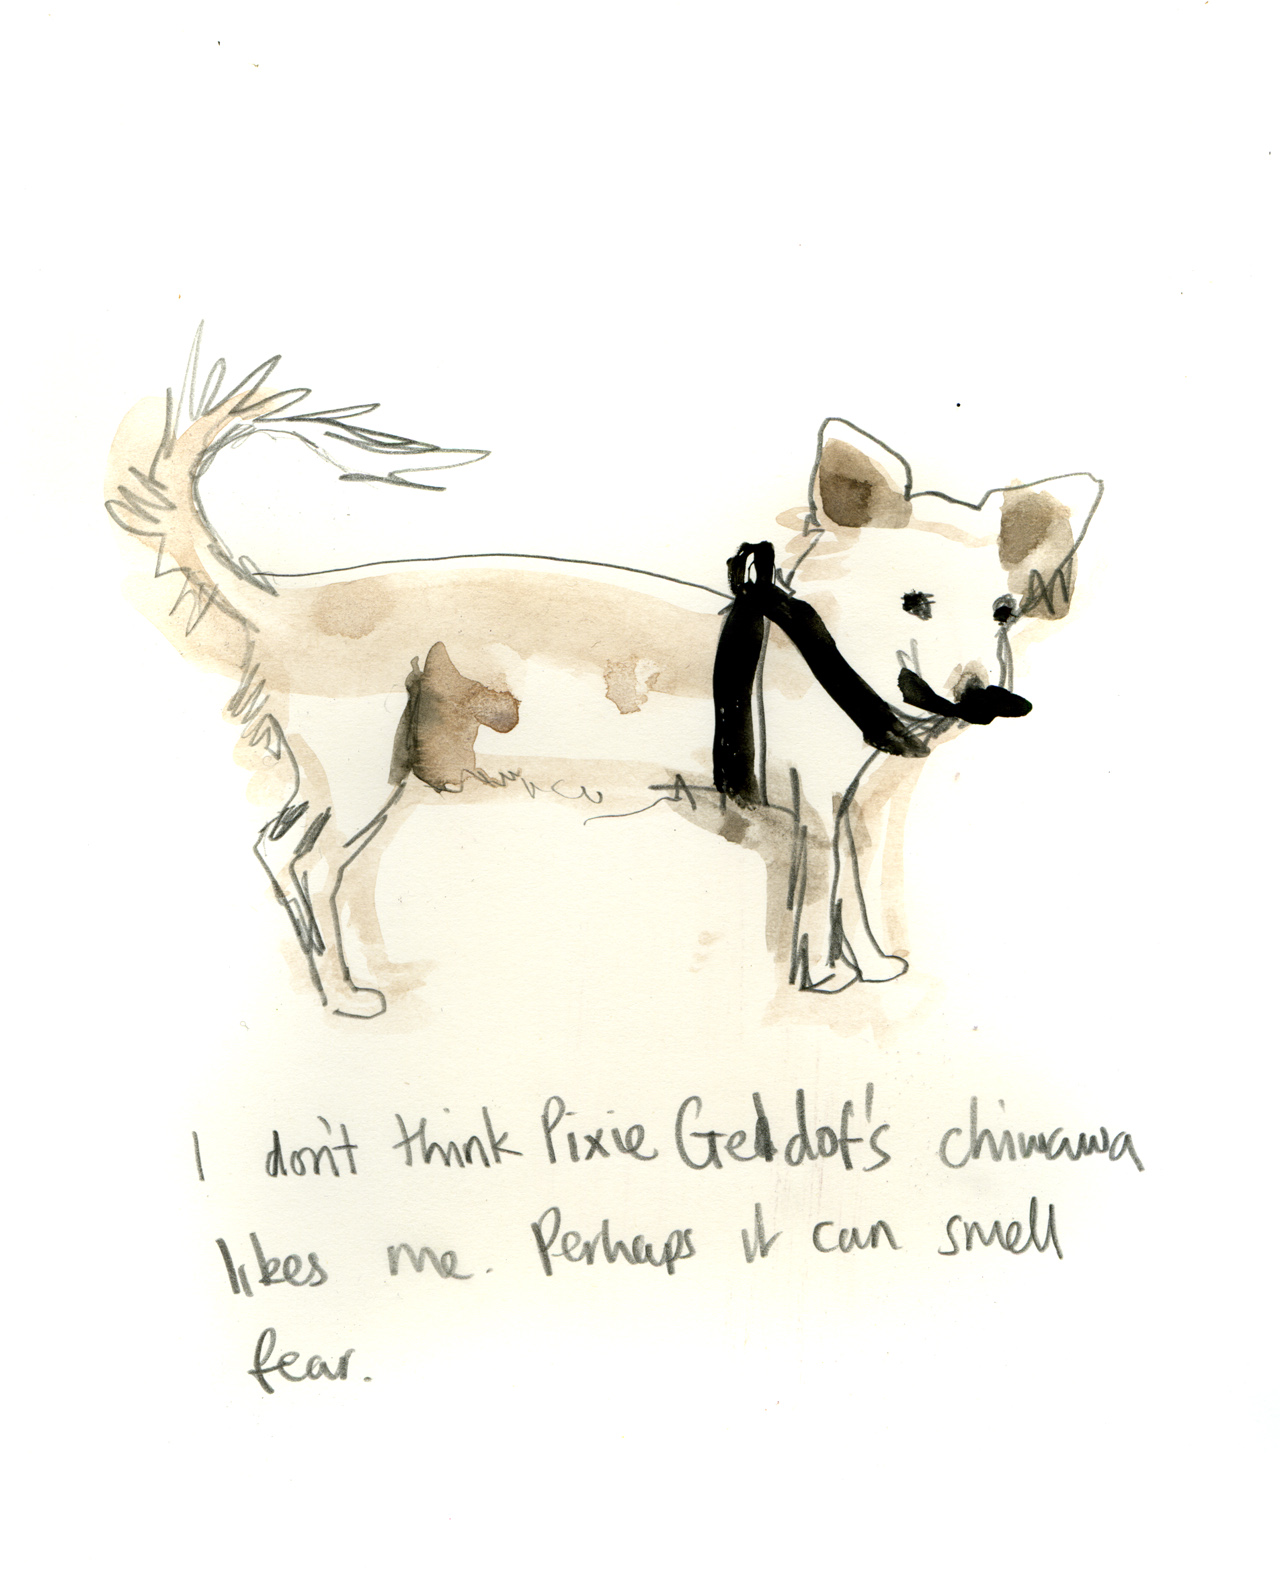 I don't think Pixie Geldof's chiwawa
likes me. Perhaps it can smell
fear.